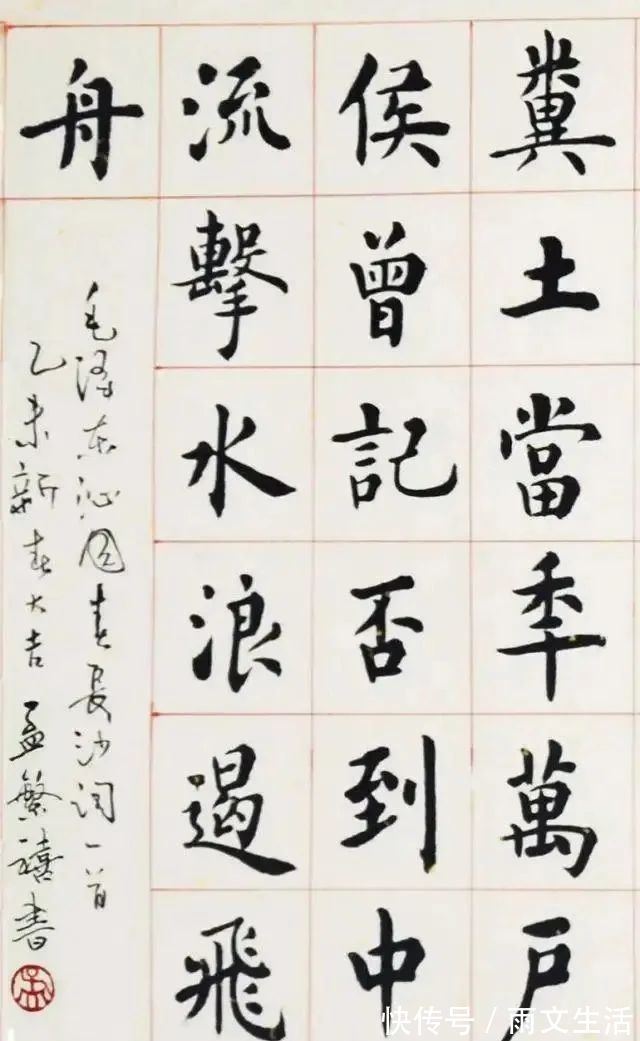 糞土當秊萬戶
侯曾記否到中
流擊水浪遏飛
舟
毛澤东沁园春長沙词一首
乙未新春大吉 孟繁禧書
孟
快传号／雨文生活